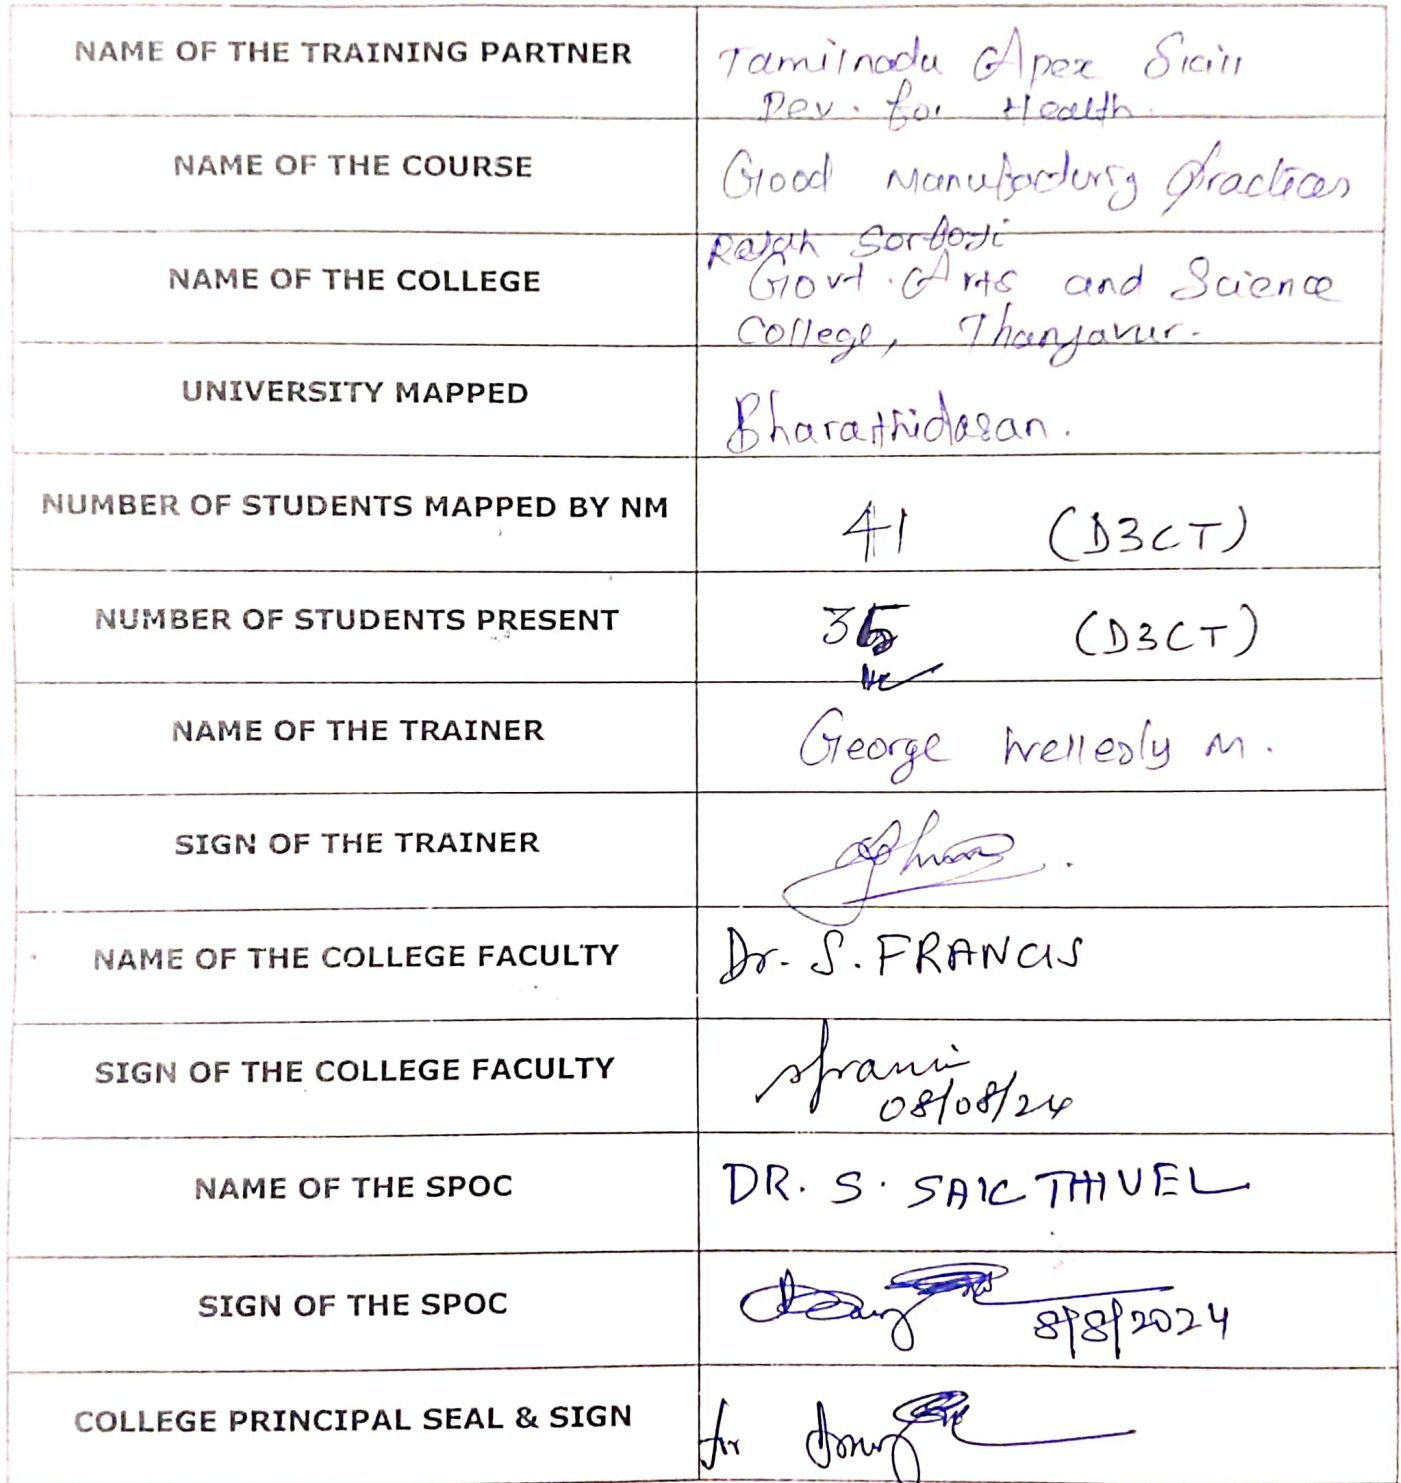 NAME OF THE TRAINING PARTNER
Tamilnadu Apex Skill
Dev. for Health.
NAME OF THE COURSE
Good Manufacturing Practices
NAME OF THE COLLEGE
Rajah Serfoji
Govt. Arts and Science
College, Thanjavur.
UNIVERSITY MAPPED
Bharathidasan.
NUMBER OF STUDENTS MAPPED BY NM
41 (D3CT)
NUMBER OF STUDENTS PRESENT
35 (D3CT)
NAME OF THE TRAINER
George Wellesly M.
SIGN OF THE TRAINER
NAME OF THE COLLEGE FACULTY
Dr. S. FRANCIS
SIGN OF THE COLLEGE FACULTY
08/08/24
NAME OF THE SPOC
DR. S. SAKTHIVEL
SIGN OF THE SPOC
8/8/2024
COLLEGE PRINCIPAL SEAL & SIGN
for